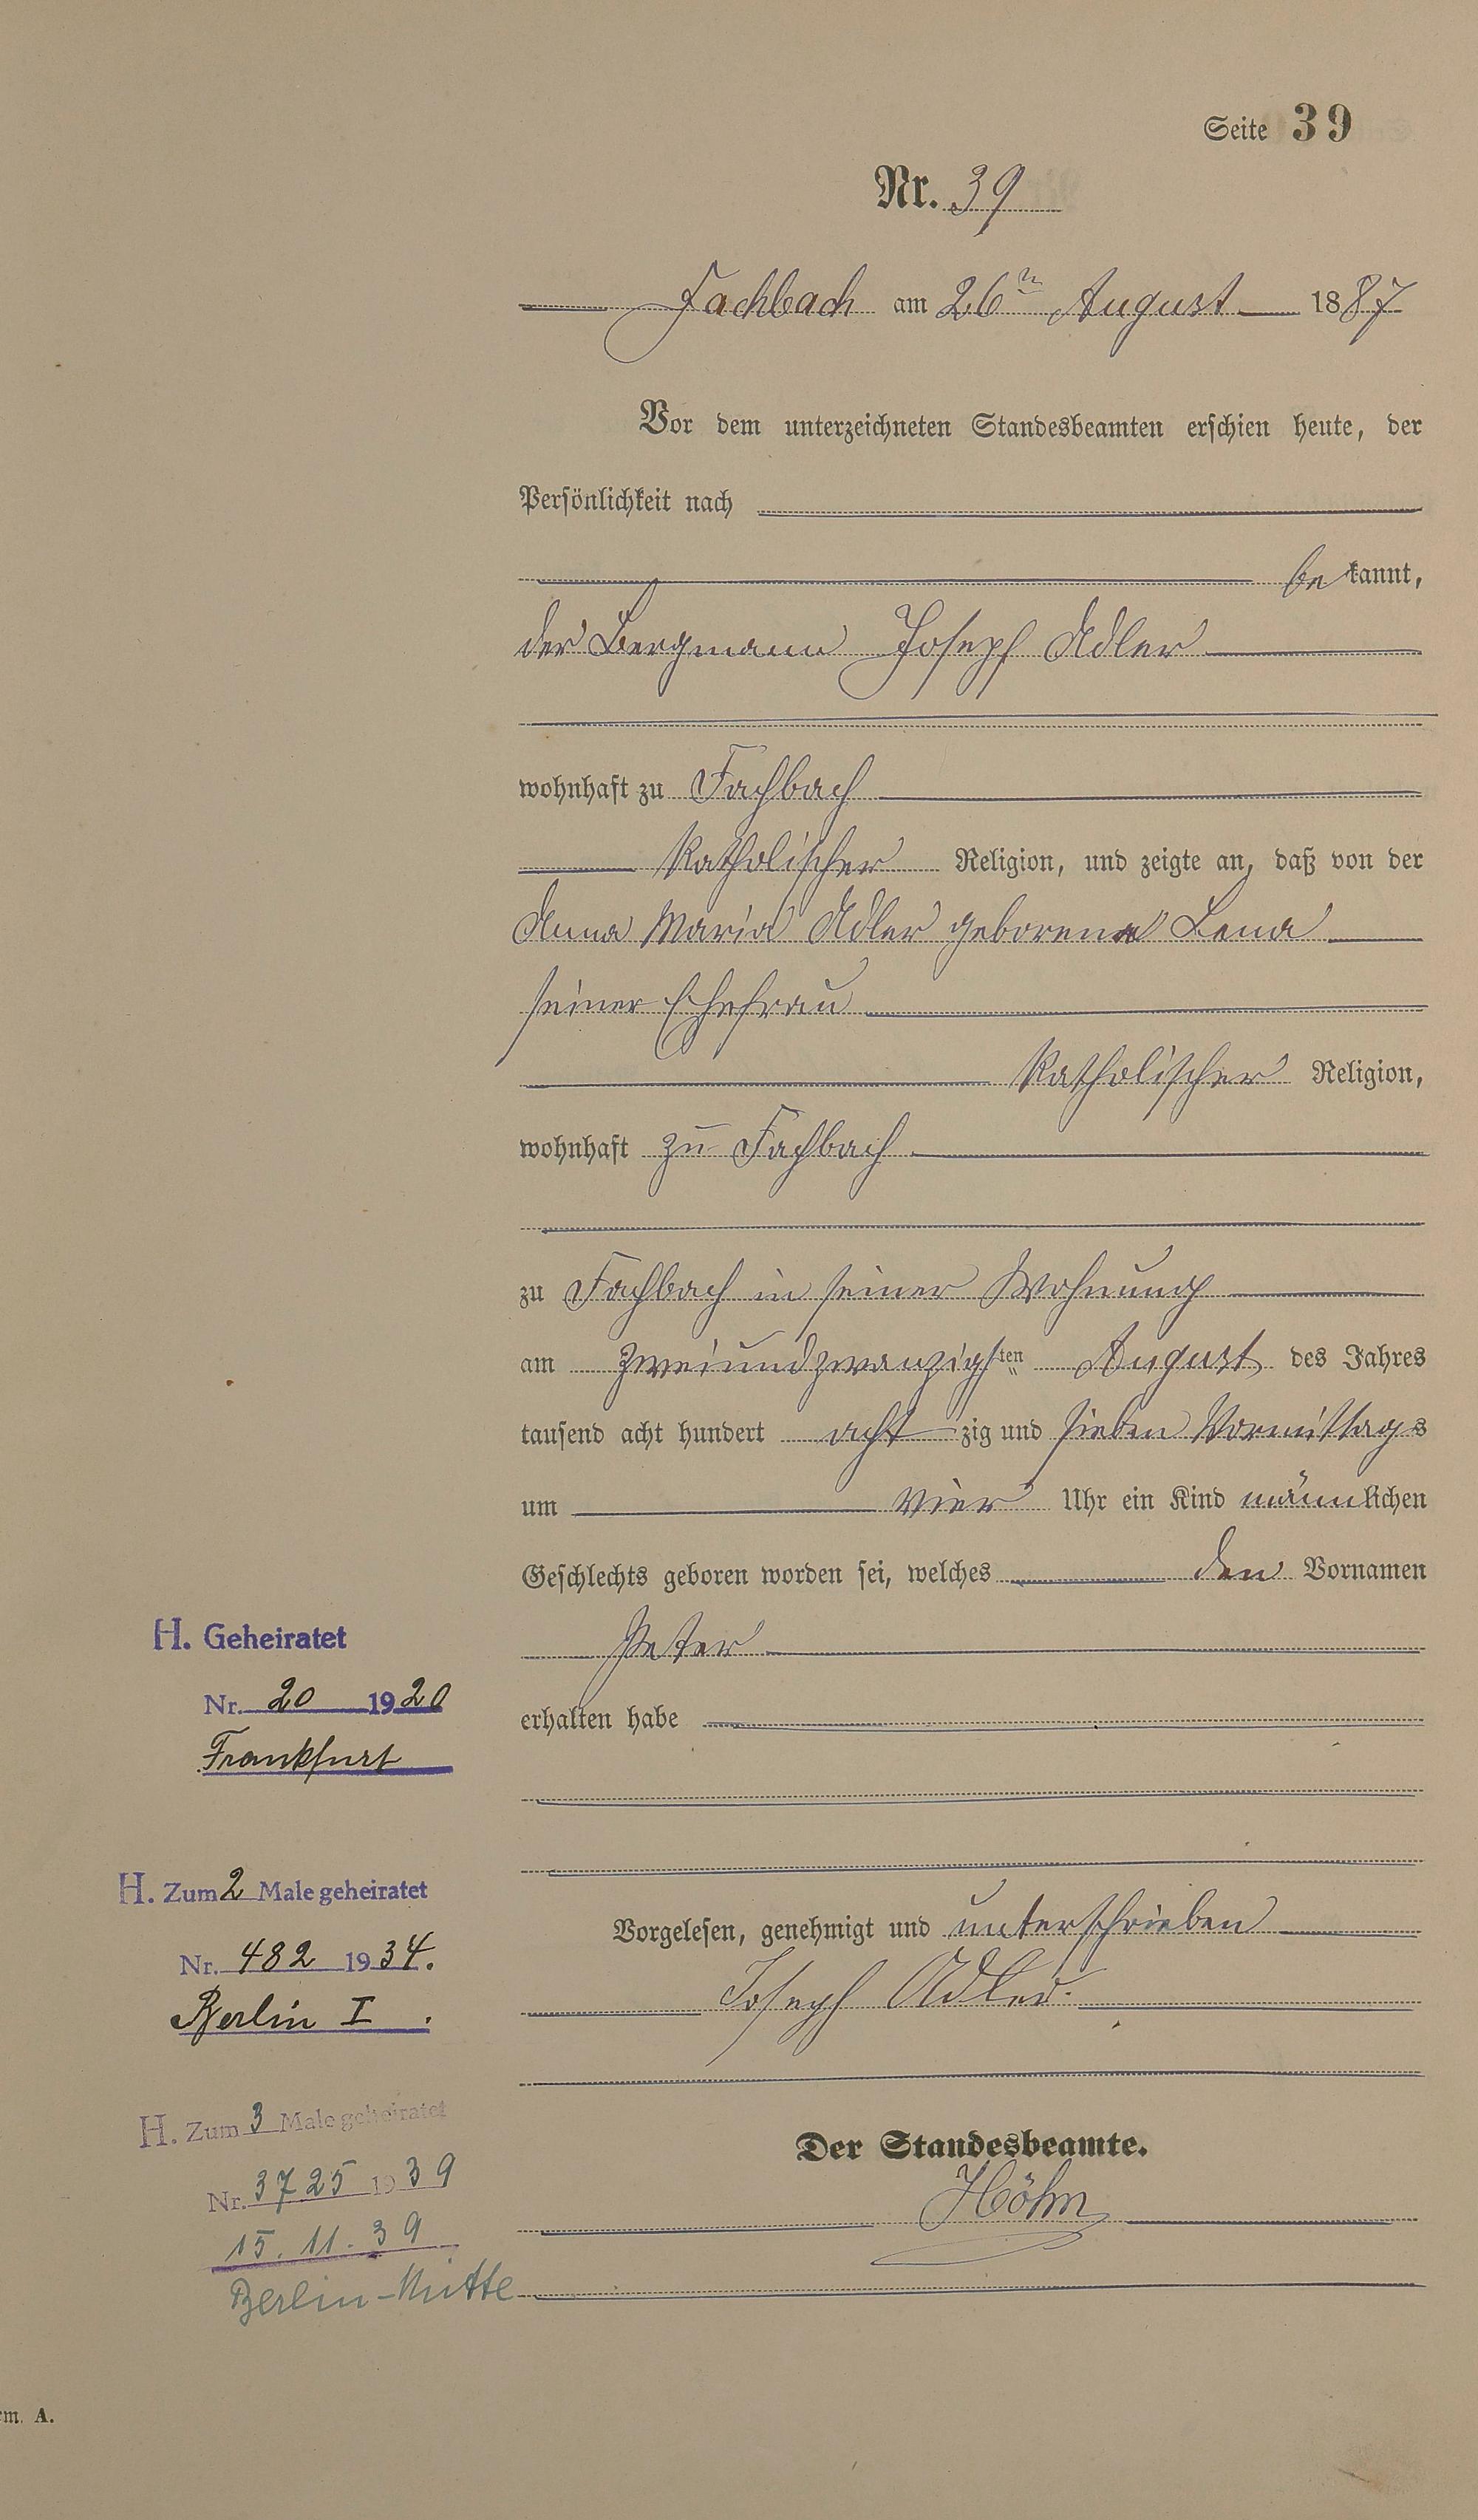 Seite 39
Nr. 39
Fachbach am 26ten August 1887
Vor dem unterzeichneten Standesbeamten erschien heute, der
Persönlichkeit nach
be kannt,
der Bergmann Joseph Adler
wohnhaft zu Fachbach
katholischer Religion, und zeigte an, daß von der
Anna Maria Adler geborene
seiner Ehefrau
katholischer Religion,
wohnhaft zu Fachbach
zu Fachbach in seiner Wohnung
am zweiundzwanzigsten August des Jahres
tausend acht hundert acht zig und sieben Vormittags
um vier Uhr ein Kind männlichen
Geschlechts geboren worden sei, welches den Vornamen
Peter
erhalten habe
Vorgelesen, genehmigt und unterschrieben
Joseph Adler.
Der Standesbeamte.
Höhn
H. Geheiratet
Nr. 20 1920
Frankfurt
H. Zum 2 Male geheiratet
Nr. 482 1934.
Berlin I.
H. Zum 3 Male geheiratet
Nr. 3725 1939
15. 11. 39
Berlin-Mitte
rm. A.